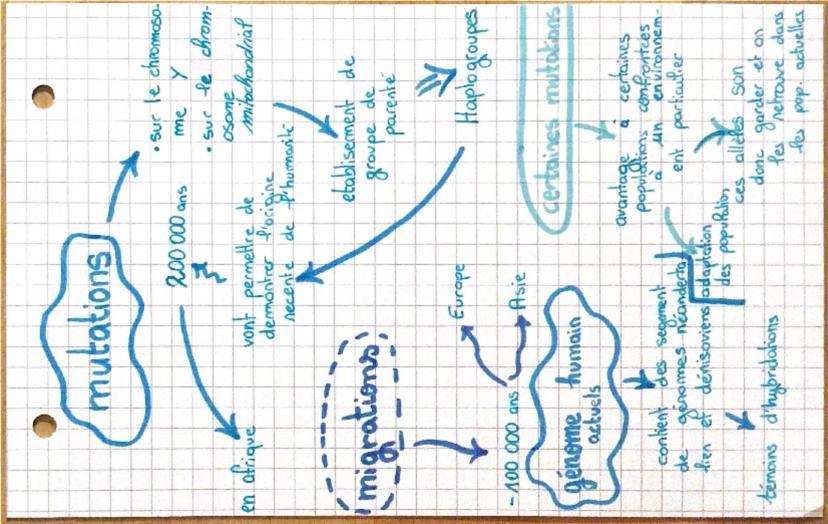 mutations
• sur le chromoso-
me Y
• sur le chrom-
osome
mitochondrial
etablissement de
groupe de
parenté
Haplogroupes
200 000 ans
vont permettre de
demontrer l'origine
recente de l'humanité
en afrique
migrations
- 100 000 ans
Europe
Asie
génome humain
actuels
contient des segment
de génomes néanderta
lien et dénisoviens
témoins d'hybridations
certaines mutations
avantage à certaines
populations confrontées
à un environnem-
ent particulier
ces allèles son
donc garder et on
les retrouve dans
les pop. actuelles
adaptation
des population